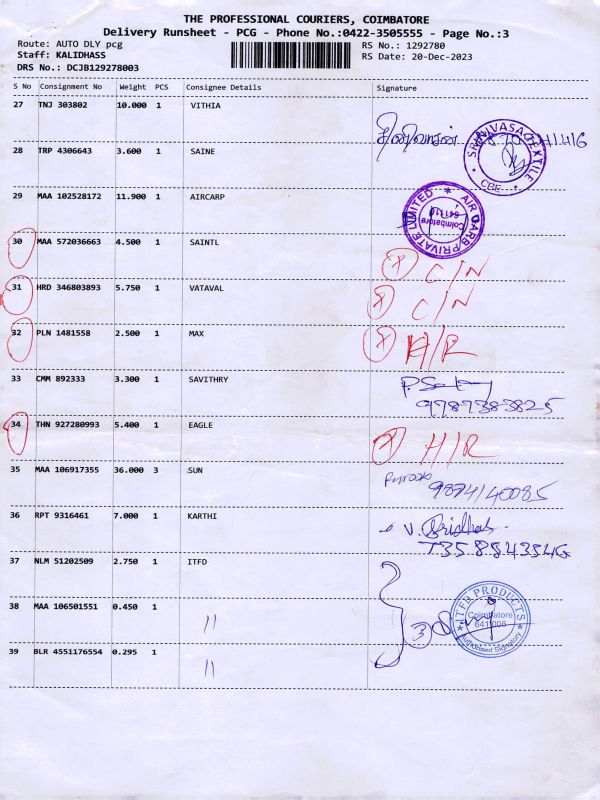 THE PROFESSIONAL COURIERS, COIMBATORE
Delivery Runsheet - PCG - Phone No.:0422-3505555 - Page No.:3
Route: AUTO DLY pcg
Staff: KALIDHASS
DRS No.: DCJB129278003
RS No.: 1292780
RS Date: 20-Dec-2023
S No Consignment No Weight PCS Consignee Details Signature
27 TNJ 303802 10.000 1 VITHIA
சீனிவாசன்
SRINIVASA TEXTILE CBE
28 TRP 4306643 3.600 1 SAINE
29 MAA 102528172 11.900 1 AIRCARP
AIR CARB PRIVATE LIMITED Coimbatore
30 MAA 572036663 4.500 1 SAINTL X C/N
31 HRD 346803893 5.750 1 VATAVAL X C/N
32 PLN 1481558 2.500 1 MAX X H/R
33 CMM 892333 3.300 1 SAVITHRY
9787383825
34 THN 927280993 5.400 1 EAGLE X H/R
35 MAA 106917355 36.000 3 SUN
36 RPT 9316461 7.000 1 KARTHI V. Sridhar
37 NLM 51202509 2.750 1 ITFD
38 MAA 106501551 0.450 1 "
3
ITFD PRODUCTS Coimbatore 641 006 Authorised Signatory
39 BLR 4551176554 0.295 1 "